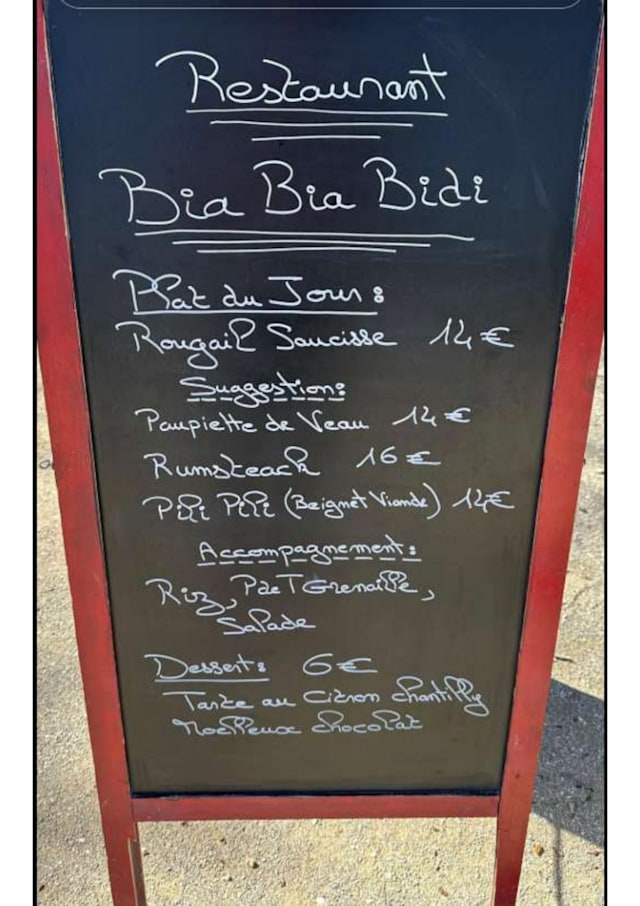 Restaurant
Bia Bia Bidi
Plat du Jour :
Rougail Saucisse 14 €
Suggestion :
Paupiette de Veau 14 €
Rumsteack 16 €
Pili Pili (Beignet Viande) 14€
Accompagnement :
Riz, P de T Grenaille,
Salade
Dessert : 6 €
Tarte au Citron chantilly
Moelleux chocolat